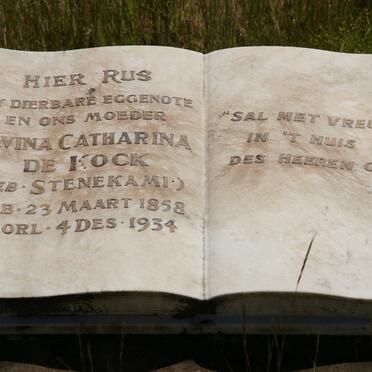 HIER RUS
DIERBARE EGGENOTE
EN ONS MOEDER
VINA CATHARINA
DE KOCK
EB. STENEKAMP.)
B. 23 MAART 1858
ORL. 4 DES. 1934
SAL MET VREU
IN 'T HUIS
DES HEEREN G